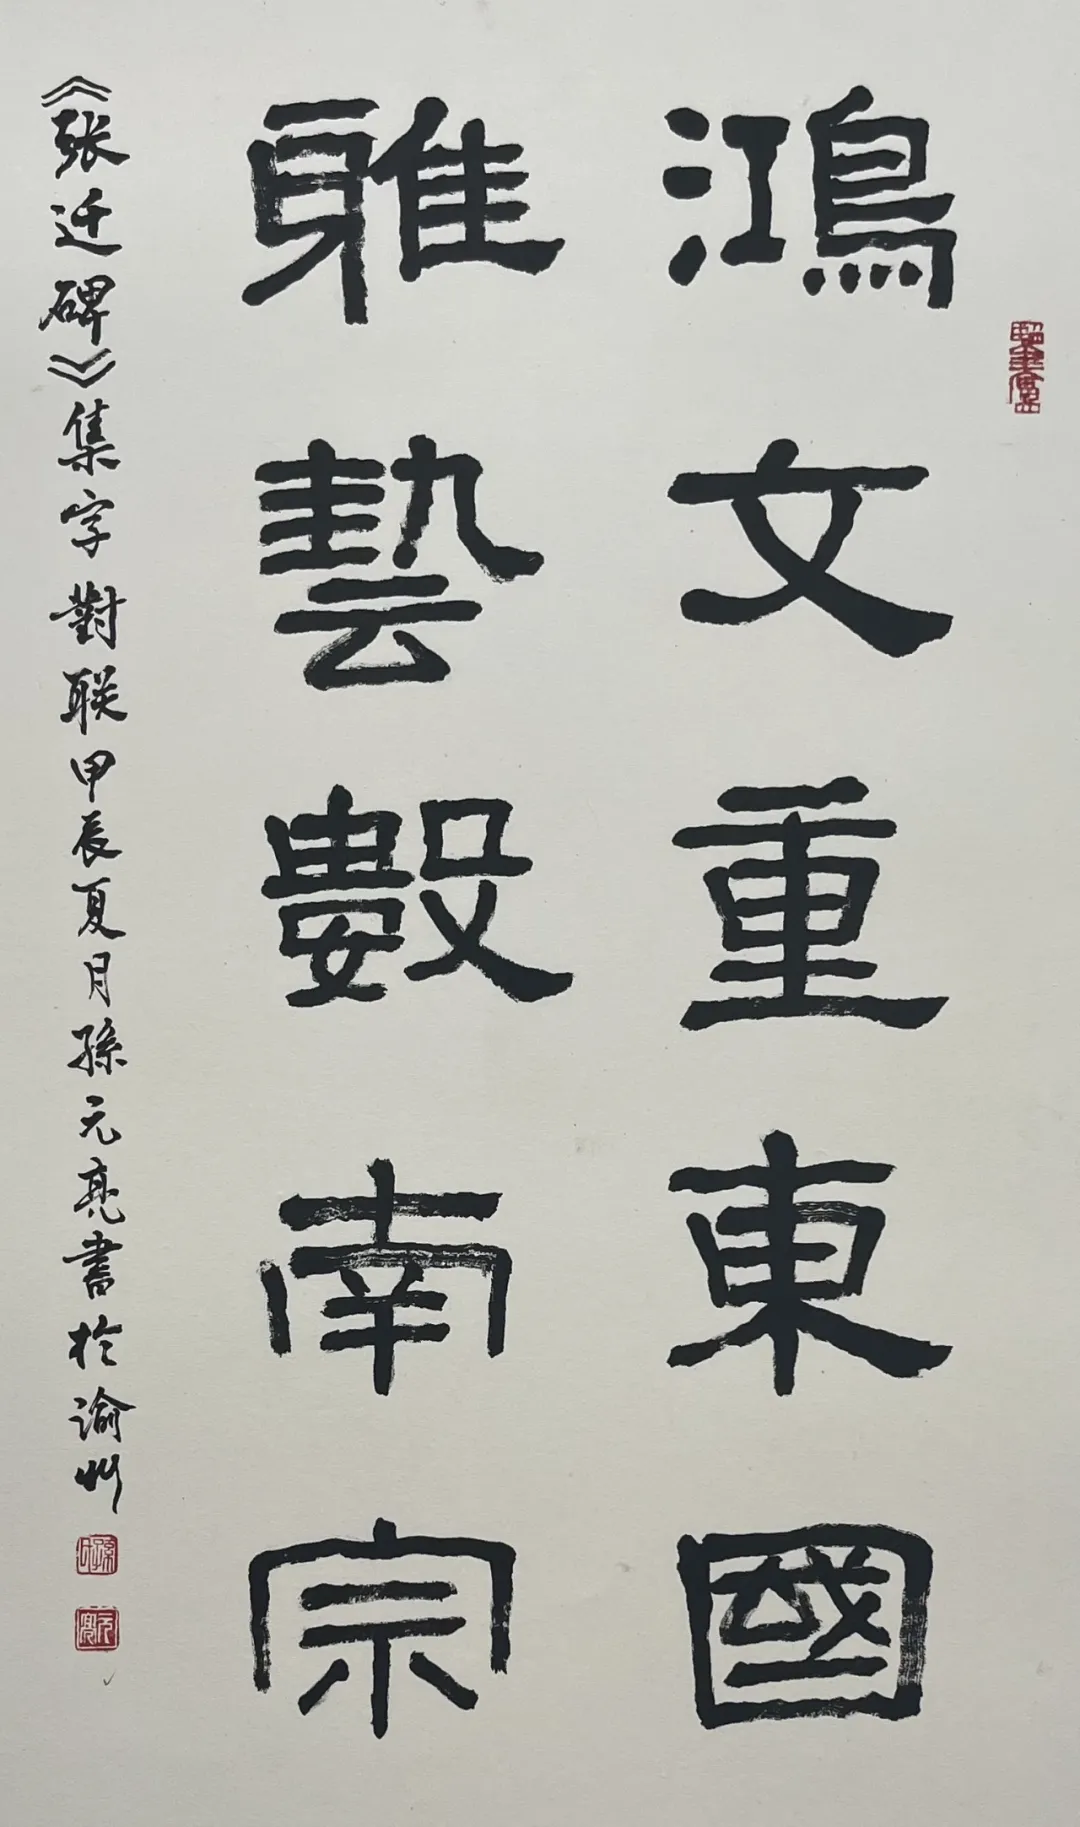 鴻文重東國
雅藝數南宗
《张迁碑》集字對联甲辰夏月孫元亮書於渝州